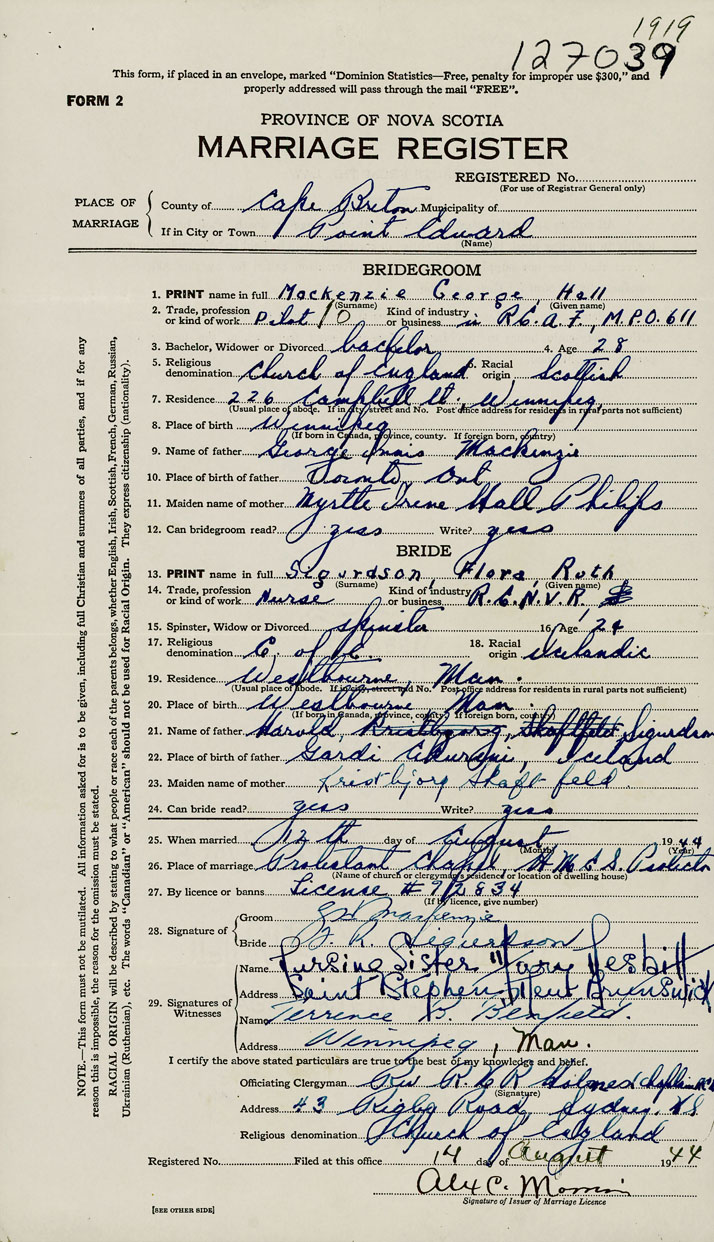 1919
127039
This form, if placed in an envelope, marked “Dominion Statistics—Free, penalty for improper use $300,” and
properly addressed will pass through the mail “FREE”.
FORM 2
PROVINCE OF NOVA SCOTIA
MARRIAGE REGISTER
REGISTERED No.
(For use of Registrar General only)
PLACE OF MARRIAGE
County of Cape Breton Municipality of
If in City or Town Point Edward
(Name)
BRIDEGROOM
1. PRINT name in full Mackenzie George, Hall
(Surname) (Given name)
2. Trade, profession or kind of work Pilot /O Kind of industry or business in R.C.A.F., M.P.O. 611
3. Bachelor, Widower or Divorced bachelor 4. Age 28
5. Religious denomination Church of England 6. Racial origin Scottish
7. Residence 226 Campbell St., Winnipeg
(Usual place of abode. If in city street and No. Post office address for residents in rural parts not sufficient)
8. Place of birth Winnipeg
(If born in Canada, province, county. If foreign born, country)
9. Name of father George Innis Mackenzie
10. Place of birth of father Toronto, Ont
11. Maiden name of mother Myrtle Irene Hall Philips
12. Can bridegroom read? yess Write? yess
BRIDE
13. PRINT name in full Sigurdson, Flora, Ruth
(Surname) (Given name)
14. Trade, profession or kind of work Nurse Kind of industry or business R.C.N.V.R.
15. Spinster, Widow or Divorced spinster 16. Age 24
17. Religious denomination C. of E. 18. Racial origin Icelandic
19. Residence Westbourne, Man.
(Usual place of abode. If in city, street and No. Post office address for residents in rural parts not sufficient)
20. Place of birth Westbourne Man.
(If born in Canada, province, county. If foreign born, country)
21. Name of father Harold, Sigurdson
22. Place of birth of father Gardi Iceland
23. Maiden name of mother Kristbjorg Shaftfeld
24. Can bride read? yess Write? yess
25. When married 12th day of August 1944
(Month) (Year)
26. Place of marriage Protestant Chapel, H.M.C.S. Protector
(Name of church or clergyman's residence or location of dwelling house)
27. By licence or banns License # 92834
(If by licence, give number)
28. Signature of Groom G H Mackenzie
Bride F. R. Sigurdson
29. Signatures of Witnesses
Name Nursing Sister Mary Nesbitt
Address Saint Stephen New Brunswick
Name Terrence B. Benfield.
Address Winnipeg, Man.
I certify the above stated particulars are true to the best of my knowledge and belief.
Officiating Clergyman Rev Holmes Chaplain
(Signature)
Address 43 Rigby Road Sydney. N.S
Religious denomination Church of England
Registered No. Filed at this office 14 day of August 1944
Alex C. Morrison
Signature of Issuer of Marriage Licence
[SEE OTHER SIDE]
NOTE.—This form must not be mutilated. All information asked for is to be given, including full Christian and surnames of all parties, and if for any
reason this is impossible, the reason for the omission must be stated.
RACIAL ORIGIN will be described by stating to what people or race each of the parents belongs, whether English, Irish, Scottish, French, German, Russian,
Ukrainian (Ruthenian), etc. The words “Canadian” or “American” should not be used for Racial Origin. They express citizenship (nationality).